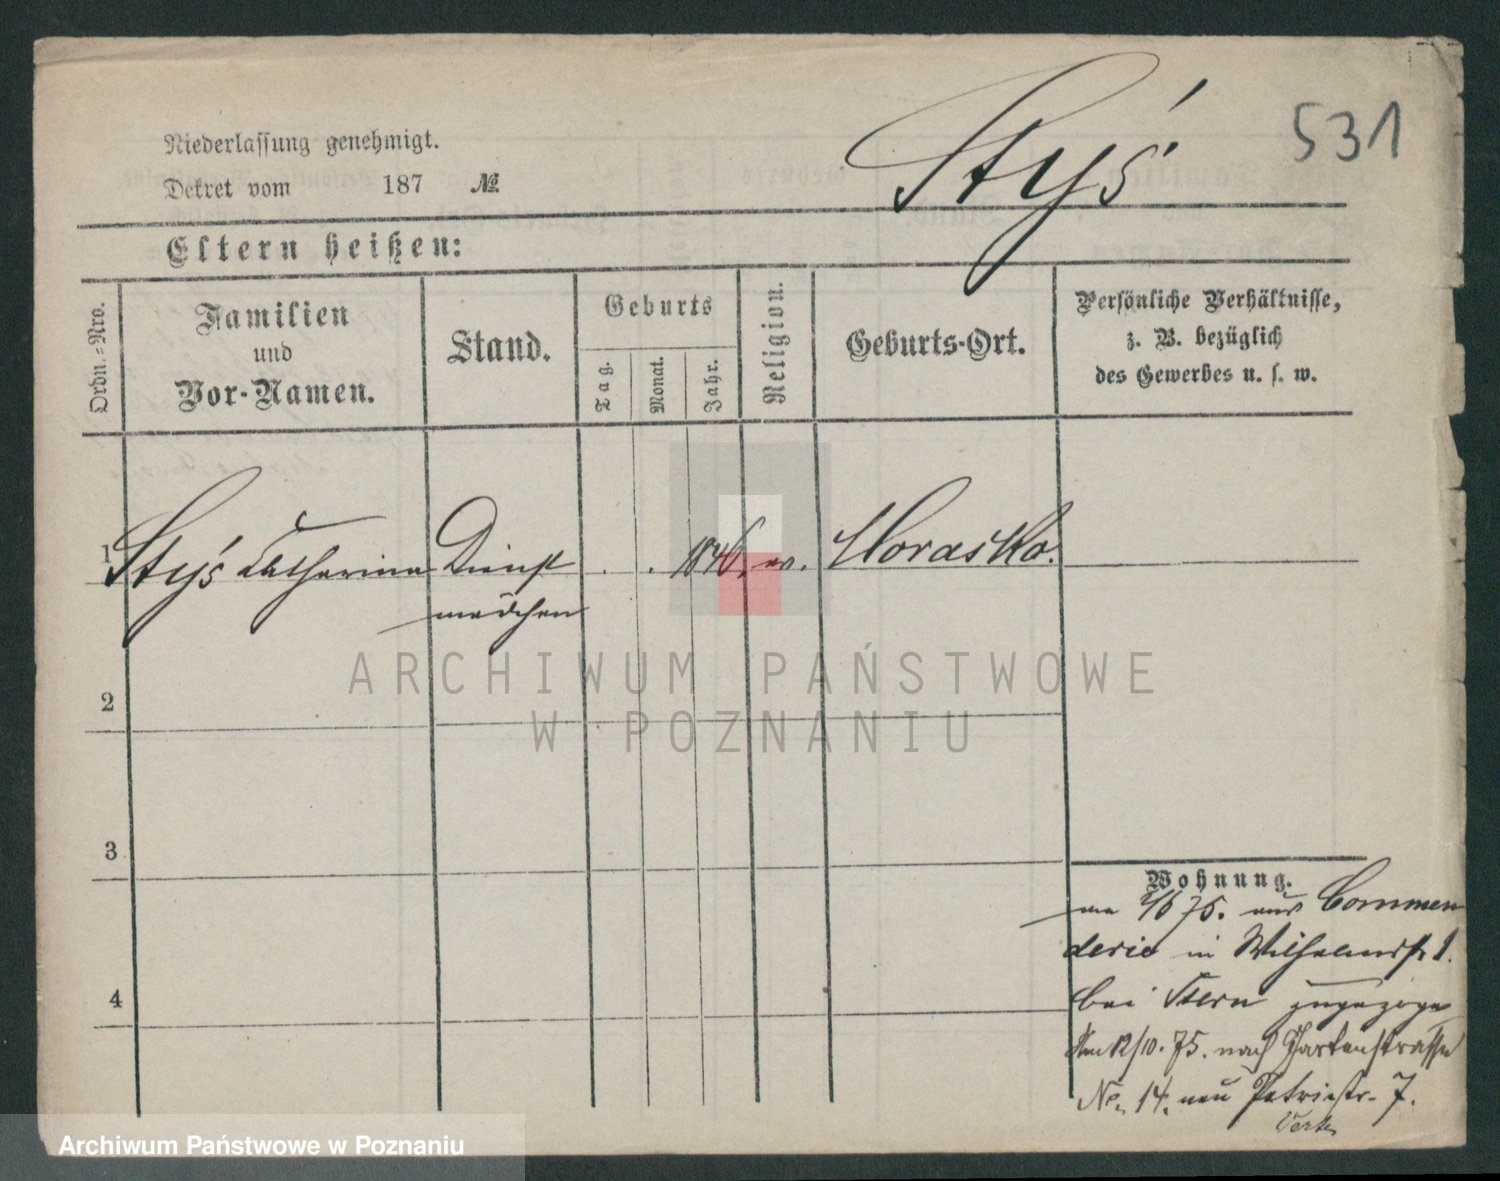 Styś
531
Niederlassung genehmigt.
Dekret vom 187 №
Eltern heißen:
Ordn.=Nro.
Familien
und
Vor-Namen.
Stand.
Geburts
Tag.
Monat.
Jahr.
Religion.
Geburts-Ort.
Persönliche Verhältnisse,
z. B. bezüglich
des Gewerbes u. s. w.
1 Styś Catharina Dienst . . 1846. Morasko.
mädchen
2
3
4
Wohnung.
75. aus Commen
derie in Wilhelmstr 1.
bei Stern zugezogen
Am 12/10. 75. nach Gartenstrasse
No. 14. neu Petristr. 7.
ARCHIWUM PAŃSTWOWE
W POZNANIU
Archiwum Państwowe w Poznaniu